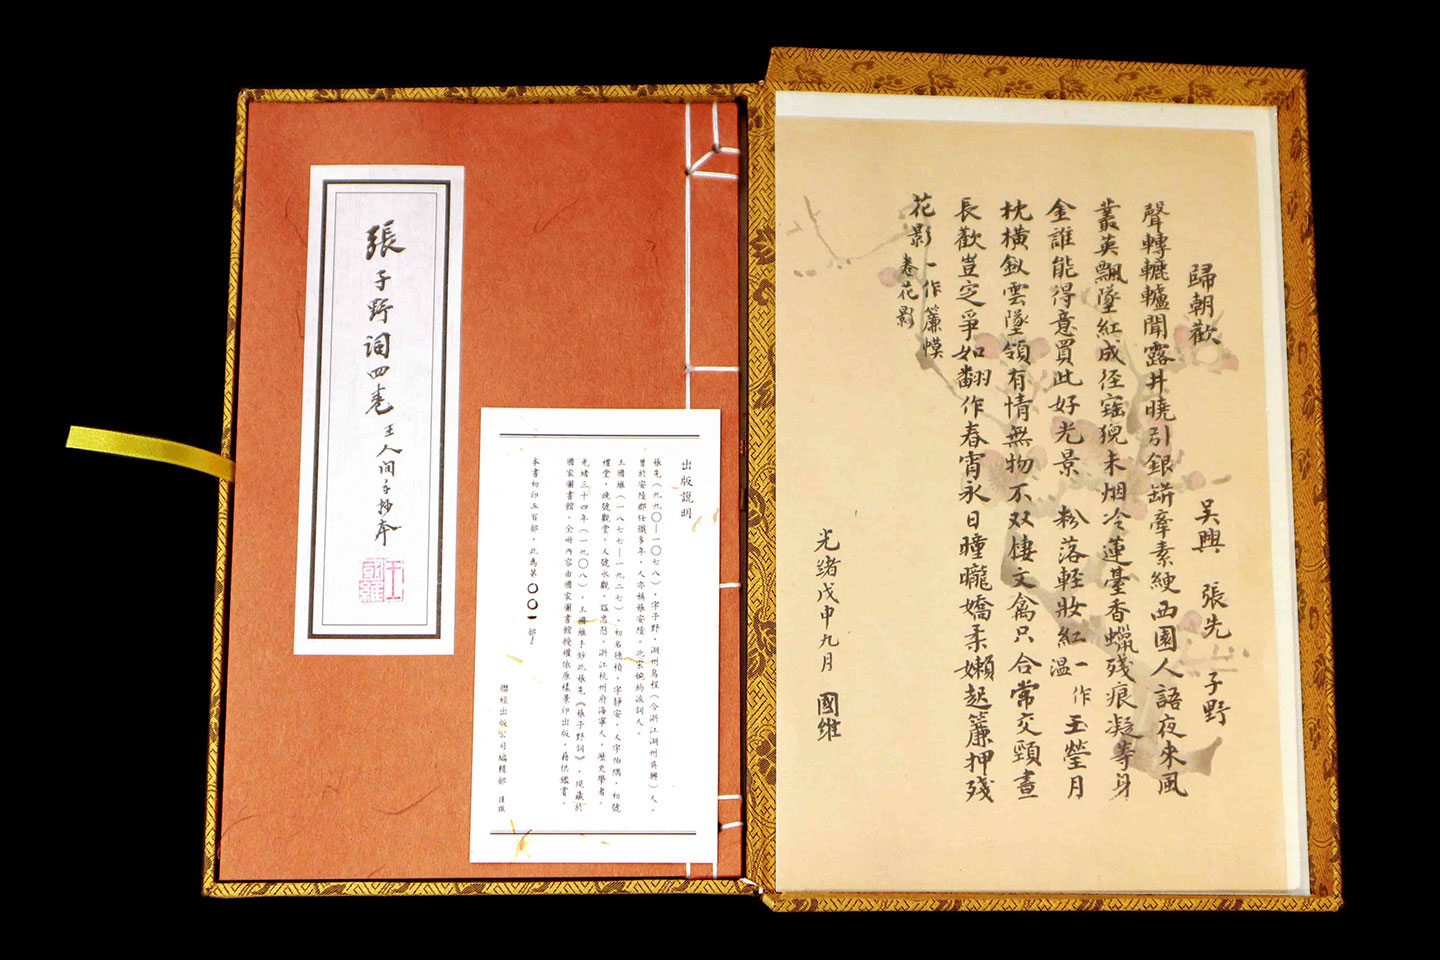 張子野詞四卷 王人间手抄本
王國維
出版說明
張先(九九〇—一〇七八),字子野,湖州烏程(今浙江湖州吳興)人。
曾於安陸郡任職多年,人亦稱張安陸。北宋婉約派詞人。
王國維(一八七七—一九二七),初名德楨,字靜安,又字伯隅,初號
禮堂,晚號觀堂,又號永觀,諡忠愨。浙江杭州府海寧人,歷史學者。
光緒三十四年(一九〇八),王國維手鈔此張先《張子野詞》,現藏於
國家圖書館。全冊內容由國家圖書館授權依原樣景印出版,藉供鑑賞。
本書初印五百部,此為第〇〇1部
聯經出版公司編輯部 謹識
歸朝歡 吳興 張先 子野
聲轉轆轤聞露井曉引銀缾牽素綆西園人語夜來風
叢英飄墜紅成徑寶猊未烟冷蓮臺香蠟殘痕凝等身
金誰能得意買此好光景 粉落輕妝紅一作溫玉瑩月
枕橫釵雲墜領有情無物不双棲文禽只合常交頸晝
長歡豈定爭如翻作春宵永日曈曨嬌柔嬾起簾押殘
花影一作簾幙卷花影
光緒戊申九月 國維